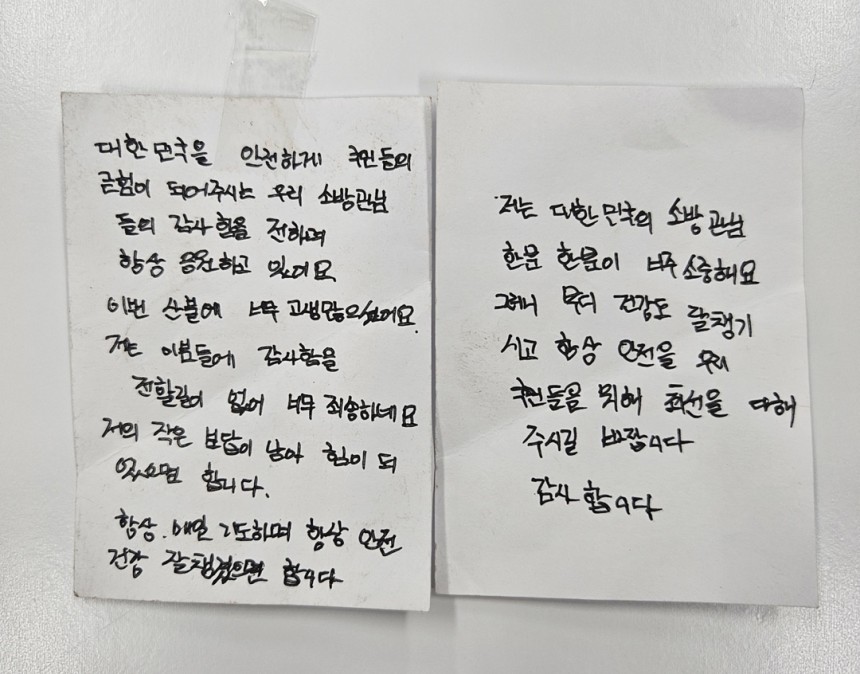 대한민국을 안전하게 국민들의
근험이 되어주시는 우리 소방관님
들의 감사함을 전하며
항상 응원하고 있어요
이번 산불에 너무 고생많으셨어요
저는 이분들에 감사함을
전할길이 없어 너무 죄송하네요
저의 작은 보답이 남아 힘이 되
었으면 합니다.
항상. 매일 기도하며 항상 안전
건강 잘챙겼으면 합니다
저는 대한민국의 소방관님
한분 한분이 너무 소중해요
그러니 부디 건강도 잘챙기
시고 항상 안전을 우리
국민들을 위해 최선을 다해
주시길 바랍니다
감사합니다